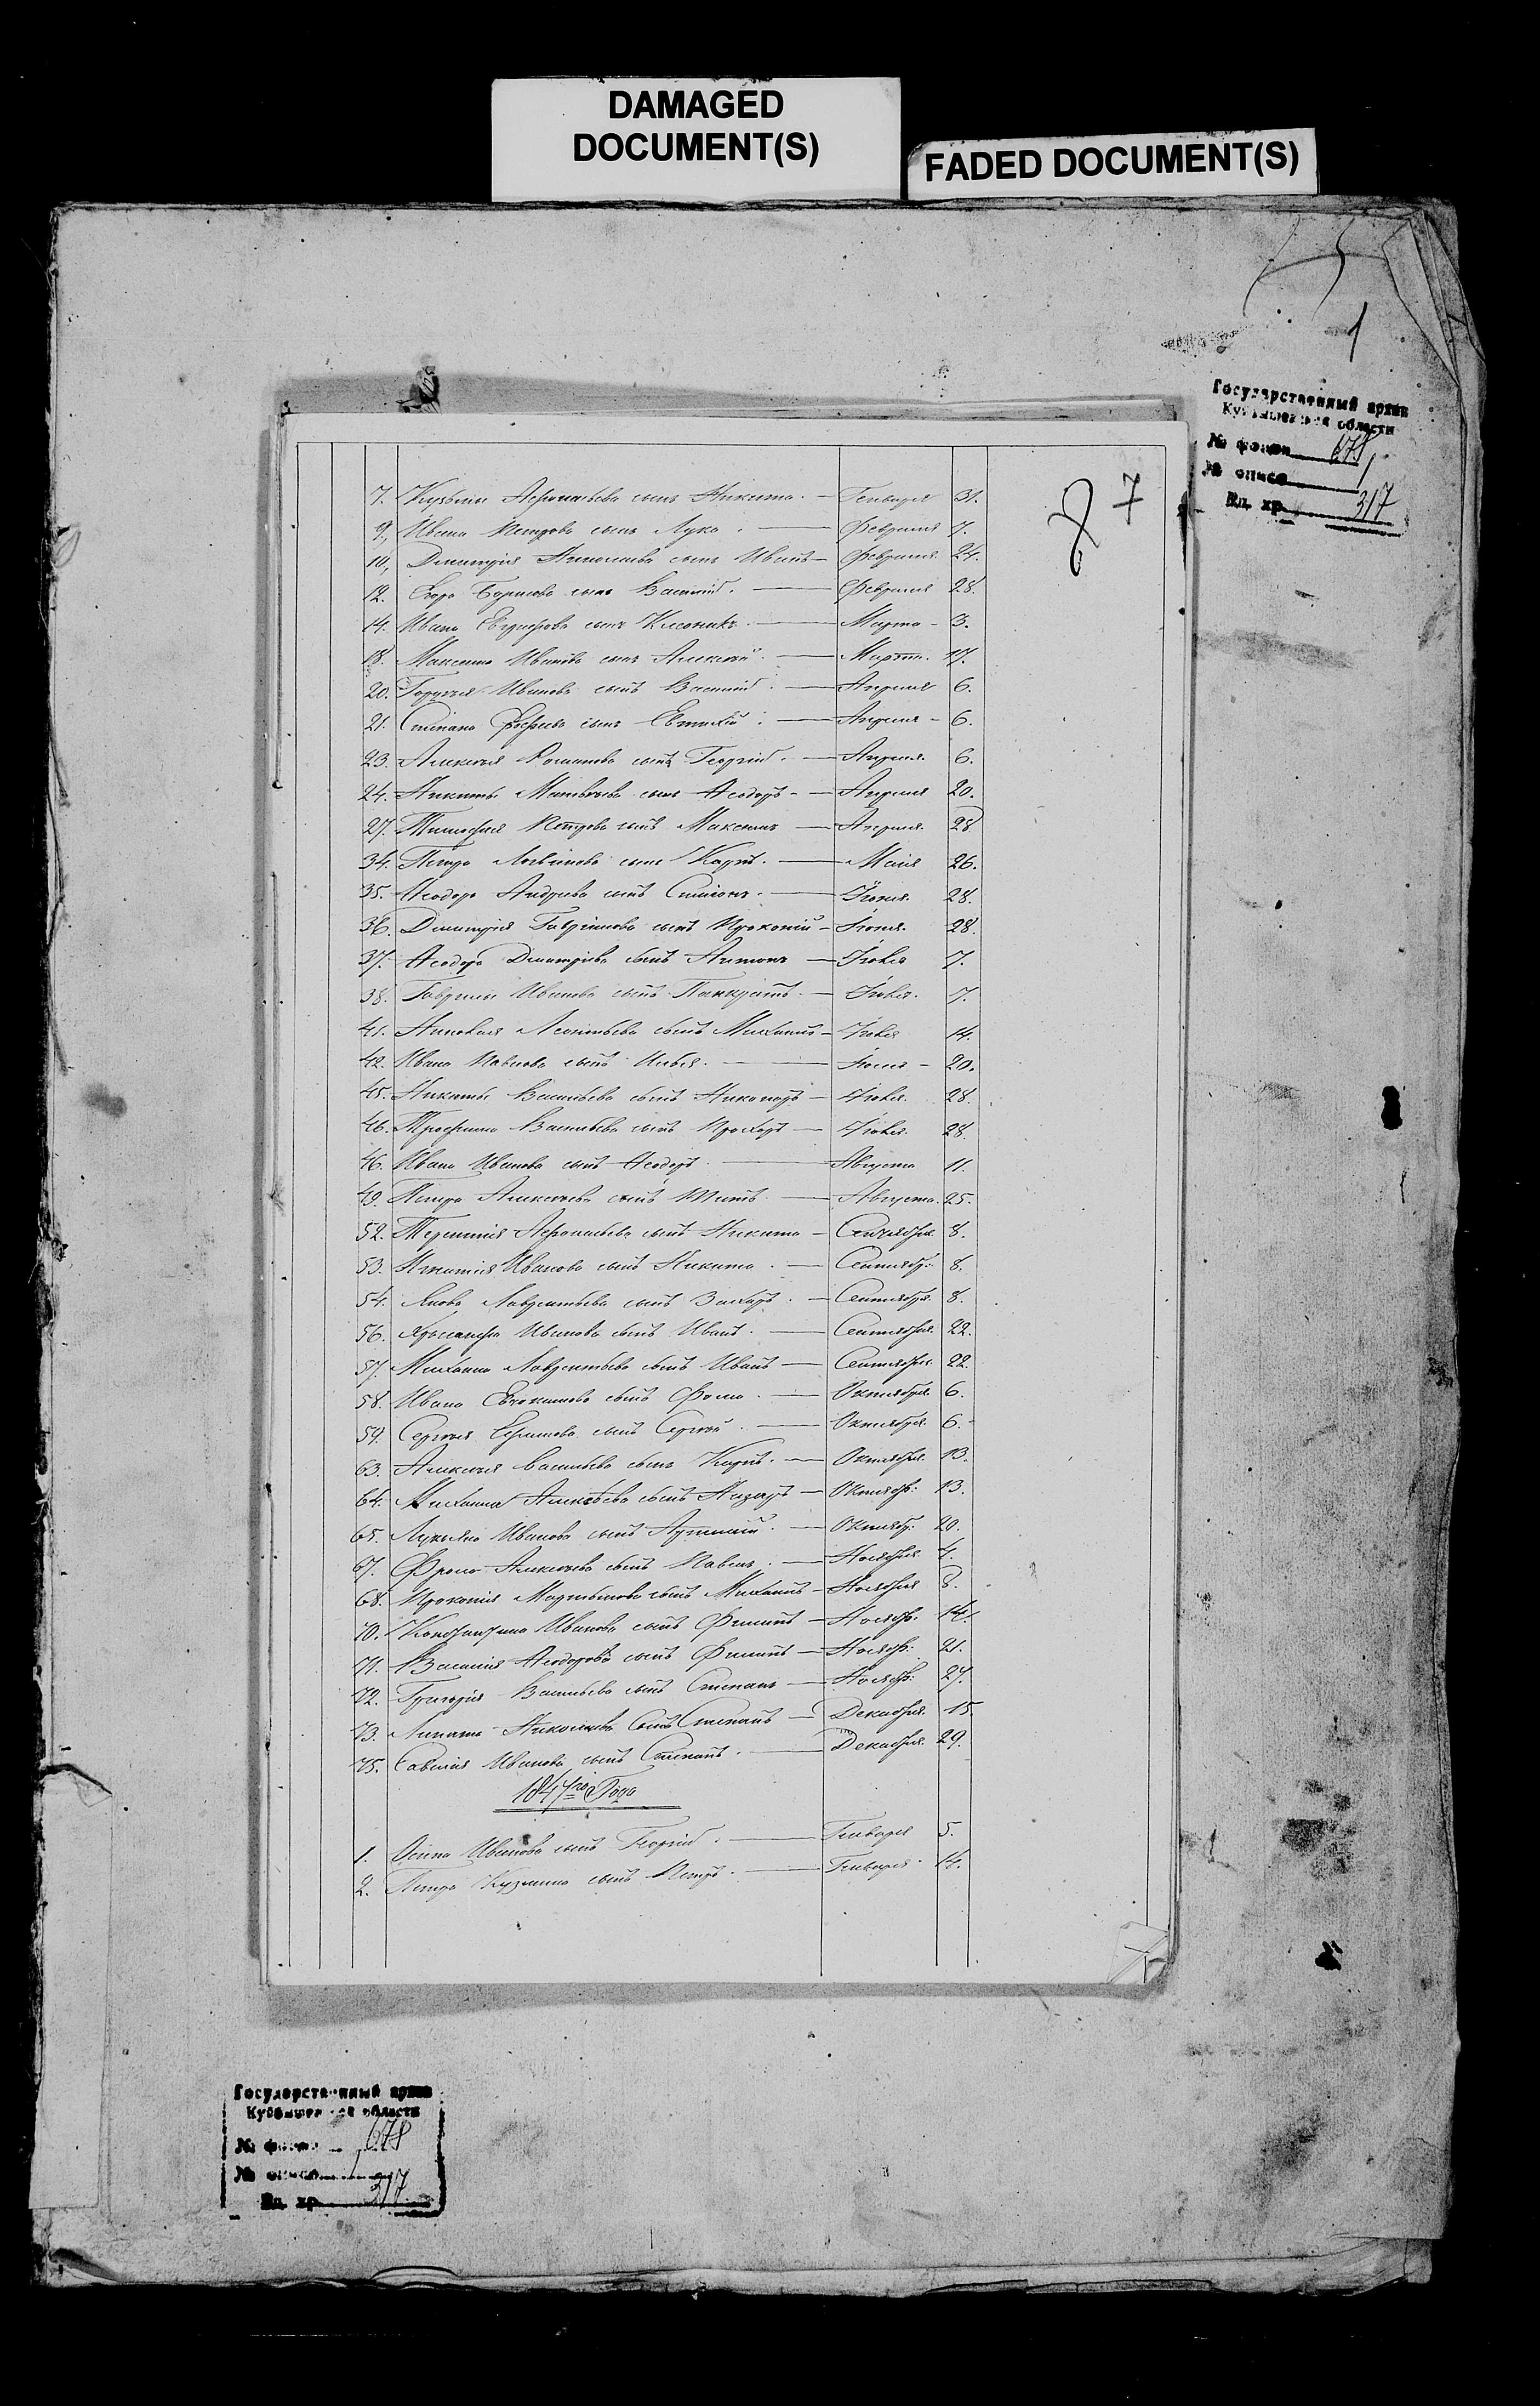 DAMAGED
DOCUMENT(S)
FADED DOCUMENT(S)
1
Государственный архив
Куйбышевской области
№ фонда 678
№ описи 1
Ед. хр. 317
7
7. Кузьмы Афонасьева сынъ Никита. — Генваря 31.
9. Ивана Петрова сынъ Лука. — Февраля 7.
10. Дмитрія Николаева сынъ Иванъ — Февраля 24.
12. Егора Борисова сынъ Василій. — Февраля 28.
14. Ивана сынъ — Марта - 3.
18. Максима Иванова сынъ Алексѣй. — Марта. 17.
20. Иванова сынъ Василій. — Апреля 6.
21. Степана сынъ Евтихій. — Апреля - 6.
23. Алексѣя Романова сынъ Георгій. — Апреля. 6.
24. Никиты Матвѣева сынъ Ѳеодоръ - — Апреля 20.
27. Тимофея Петрова сынъ Максимъ — Апреля. 28
34. Петра Логвинова сынъ Карпъ. — Маія 26.
35. Ѳеодора Андреева сынъ Симіонъ. — Іюня. 28.
36. Дмитрія Гаврилова сынъ Прокопій — Іюня. 28.
37. Ѳеодора Дмитріева сынъ Антонъ — Іюля 7.
38. Гаврилы Иванова сынъ Панкратъ. — Іюля. 7.
41. Николая Леонтьева сынъ Михаилъ — Іюля 14.
42. Ивана Павлова сынъ Илья. — Іюля - 20.
45. Никиты Васильева сынъ Никаноръ — Іюля. 28.
46. Трофима Васильева сынъ Прохоръ — Іюля. 28.
46. Ивана Иванова сынъ Ѳеодоръ. — Августа 11.
49. Петра Алексѣева сынъ Титъ. — Августа. 25.
52. Терентія Афонасьева сынъ Никита — Сентября. 8.
53. Игнатія Иванова сынъ Никита. — Сентябр: 8.
54. Якова Лаврентьева сынъ Захаръ. — Сентября. 8.
56. Хрисанфа Иванова сынъ Иванъ. — Сентября. 22.
57. Михаила Лаврентьева сынъ Иванъ — Сентября. 22.
58. Ивана Евдокимова сынъ Фома. — Октября. 6.
59. Сергѣя Ефимова сынъ Сергѣй. — Октября. 6.
63. Алексѣя Васильева сынъ Карпъ. — Октября. 13.
64. Михаила Алексѣева сынъ Назаръ — Октябр: 13.
65. Лукьяна Иванова сынъ — Октябр: 20.
67. Алексѣева сынъ Павелъ. — Ноября. 4.
68. Прокопія Мартынова сынъ Михаилъ — Ноября 8.
70. Константина Иванова сынъ Филипъ — Ноябр. 14.
71. Василія Ѳеодорова сынъ Филипъ — Ноябр: 21.
72. Григорія Васильева сынъ Степанъ — Ноябр: 27.
73. Николаева сынъ Степанъ — Декабря. 15.
75. Савелія Иванова сынъ Степанъ. — Декабря. 29.
1847го Года
1. Осипа Иванова сынъ Георгій. — Генваря 5.
2. Петра Кузмина сынъ Петръ. — Генваря 14.
Государственный архив
Куйбышевской области
№ фонда 678
№ описи 1
Ед. хр. 317